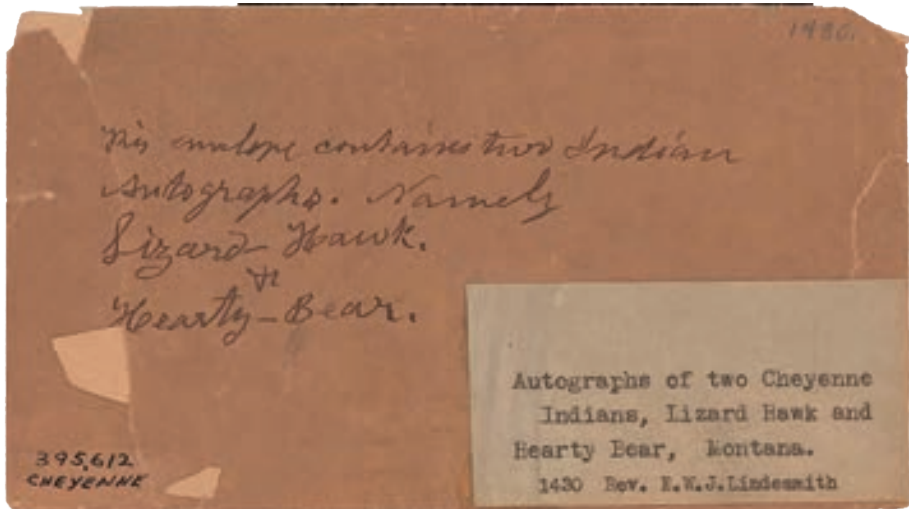 1430.
This envelope contains two Indian
Autographs. Namely
Lizard Hawk.
&
Hearty-Bear.
Autographs of two Cheyenne
Indians, Lizard Hawk and
Hearty Bear, Montana.
1430 Rev. E.W.J.Lindesmith
395,612
CHEYENNE